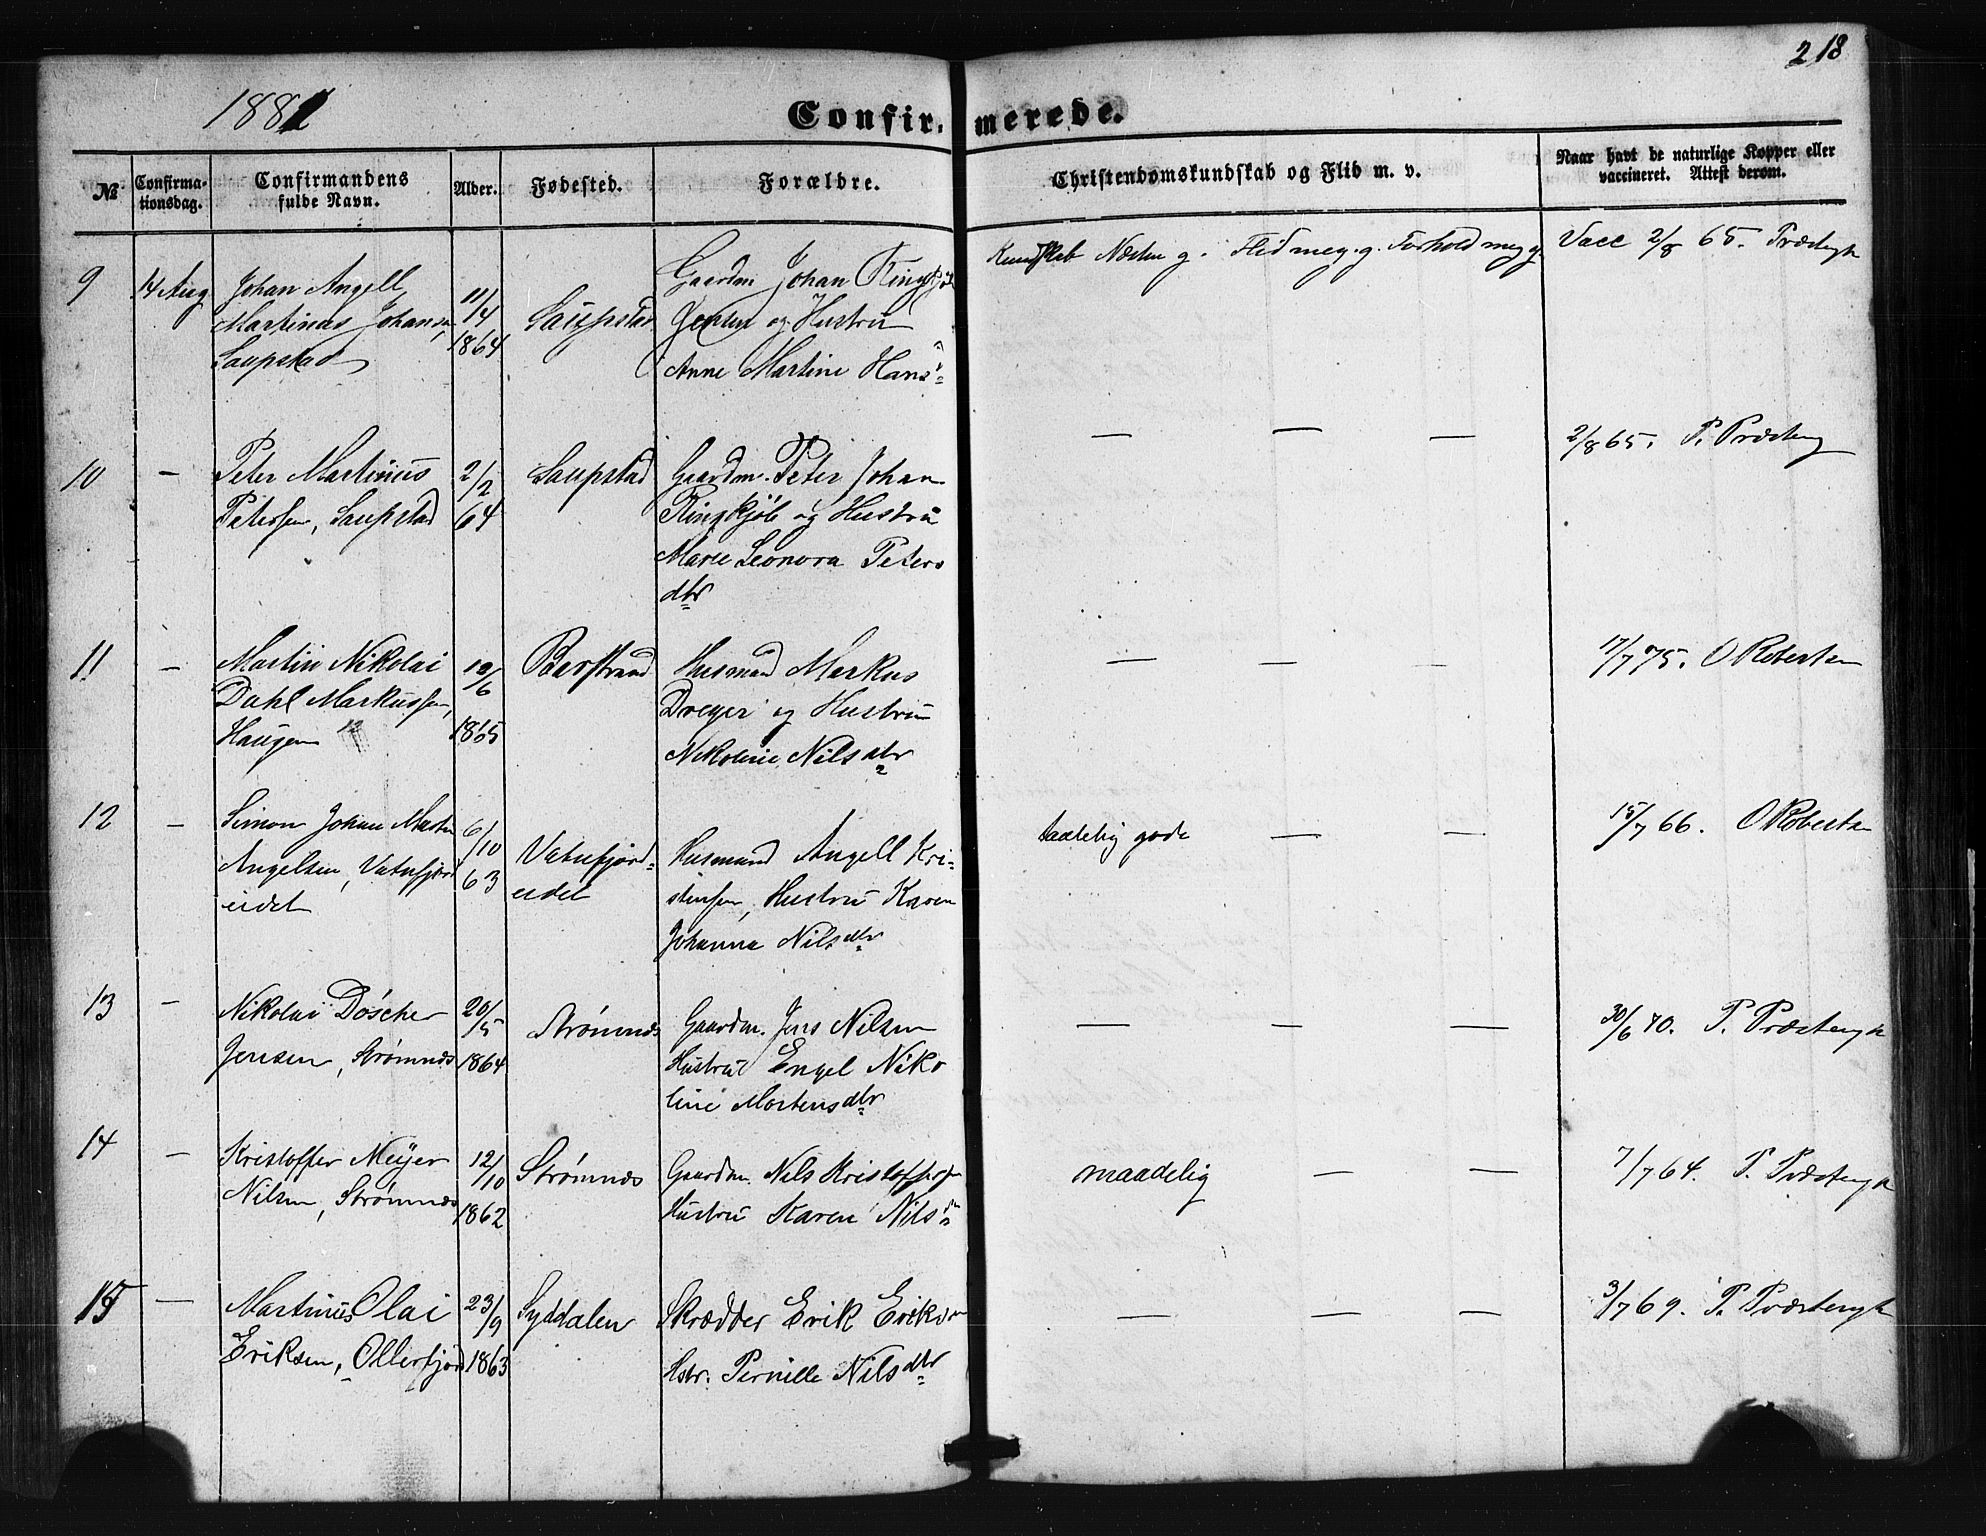 218
1881
Confirmerede.
№
Confirma-
tionsdag.
Confirmandens
fulde Navn.
Alder.
Fødested.
Forældre.
Christendomskundskab og Flid m. v.
Naar havt de naturlige Kopper eller
vaccineret. Attest derom.
9
14 Aug
Johan Angell
Martinus Johansen,
Saupstad
11/4
1864
Saupstad
Gaardm Johan Ringkjøb
Jentoft og Hustru
Anne Martine Hansd
Kundskab Næsten g. Flid meg. g. Forhold meg g
Vacc 2/8 65. Præsteng
10
—
Peter Martinus
Petersen, Saupstad
2/2
64
Saupstad
Gaardm. Peter Johan
Ringkjøb og Hustru
Marie Leonora Peters
dtr
— — —
2/8 65. P. Præsteng
11
—
Martin Nikolai
Dahl Markussen,
Haugen
1865
Barstrand
Husmand Markus
Dreyer og Hustru
Nikoline Nilsdtr
— — —
17/7 75. O Robertsen
12
—
Simon Johan Martin
Angelsen, Vatnfjord
eidet
6/10
63
Vatnfjord-
eidet
Husmand Angell Kri-
stensen, Hustru Karen
Johanna Nilsdtr
taalelig gode — —
15/7 66. O Robertsen
13
—
Nikolai Döscher
Jensen, Strømnæs
20/5
1864
Strømnæs
Gaardm. Jens Nilsen
Hustru Engel Niko
line Mortensdtr
— — —
30/6 70. P. Præstengk
14
—
Kristoffer Meÿer
Nilsen, Strømnæs
12/10
1862
Strømnæs
Gaardm. Nils Kristoffersen
Hustru Karen Nilsd
maadelig — —
7/7 64. P. Præstengk
15
—
Martinus Olai
Eriksen, Ollerfjord
23/9
1863
Syddalen
Skrædder Erik Eriksen
Hstr. Pernille Nilsdtr
— — —
3/7 69. P. Præstengk